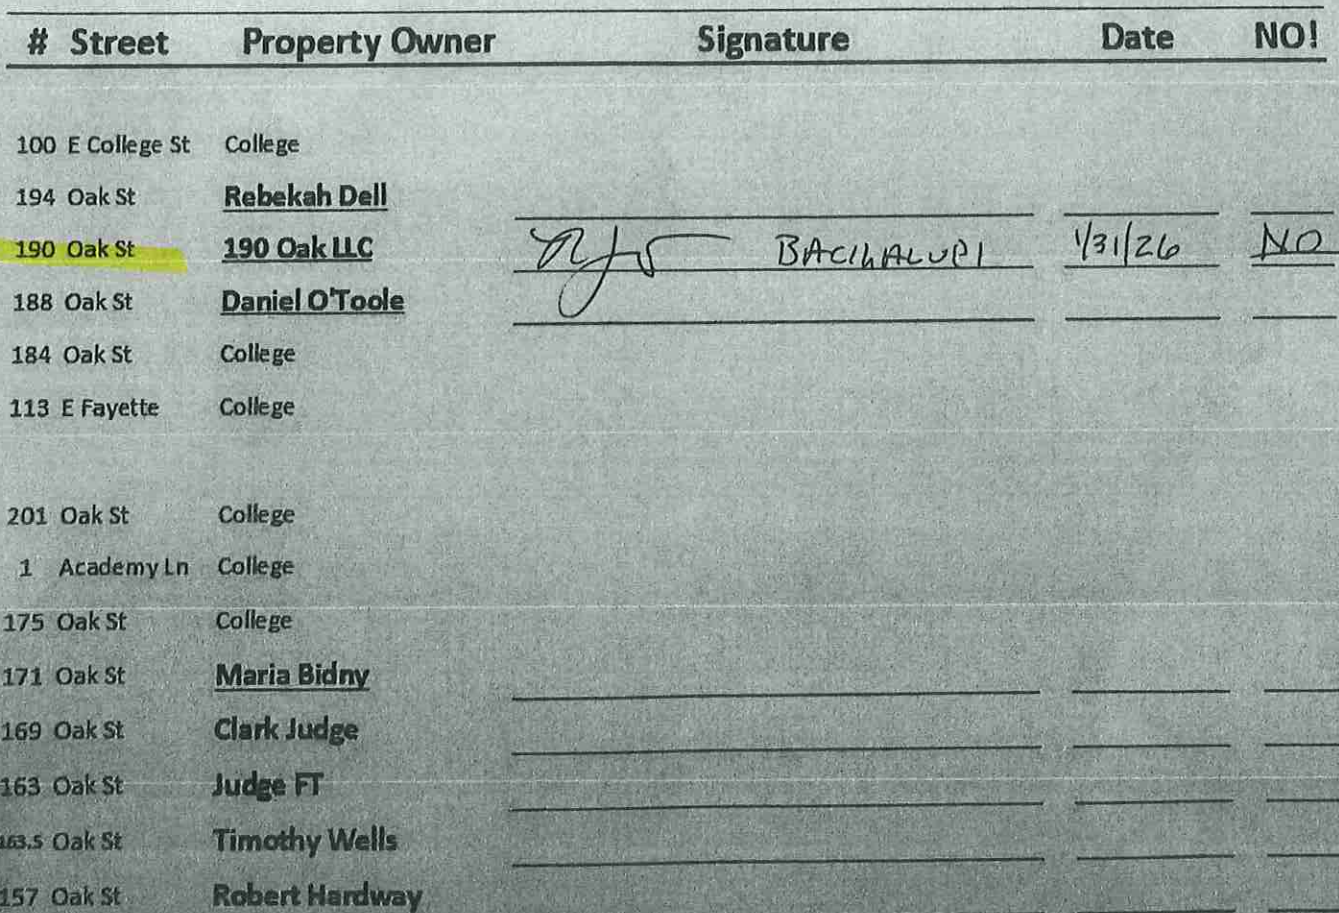 # Street Property Owner Signature Date NO!
100 E College St College
194 Oak St Rebekah Dell
190 Oak St 190 Oak LLC BACIHALUPI 1/31/26 NO
188 Oak St Daniel O'Toole
184 Oak St College
113 E Fayette College
201 Oak St College
1 Academy Ln College
175 Oak St College
171 Oak St Maria Bidny
169 Oak St Clark Judge
163 Oak St Judge FT
163.5 Oak St Timothy Wells
157 Oak St Robert Hardway